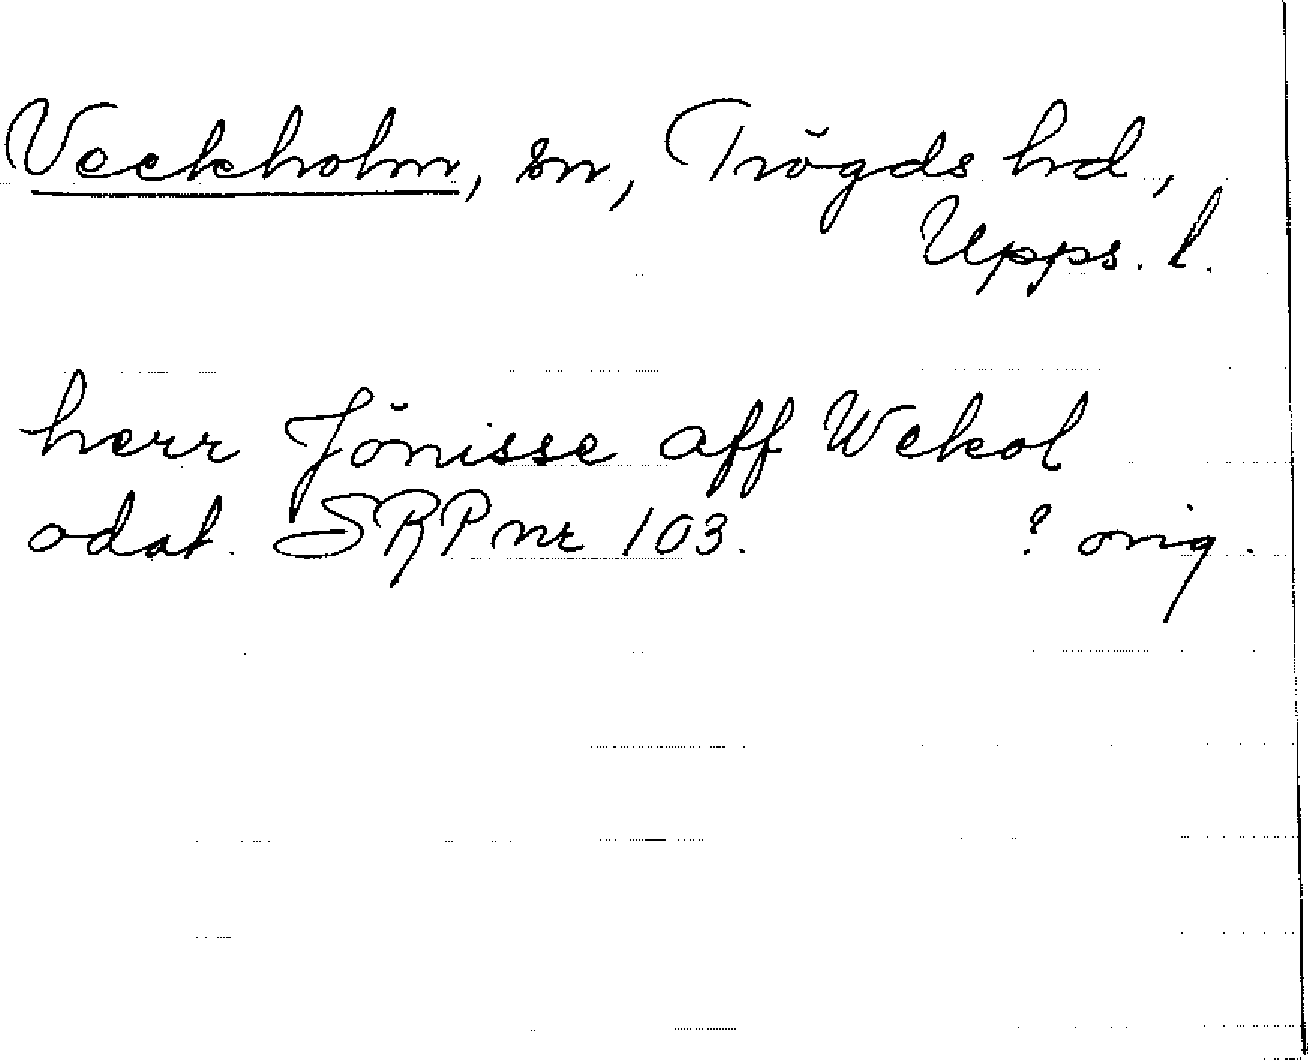 Veckholm, sn, Trögds hd,
Upps. l.
herr Jönisse aff Wekol
odat. SRP nr 103. ? orig.